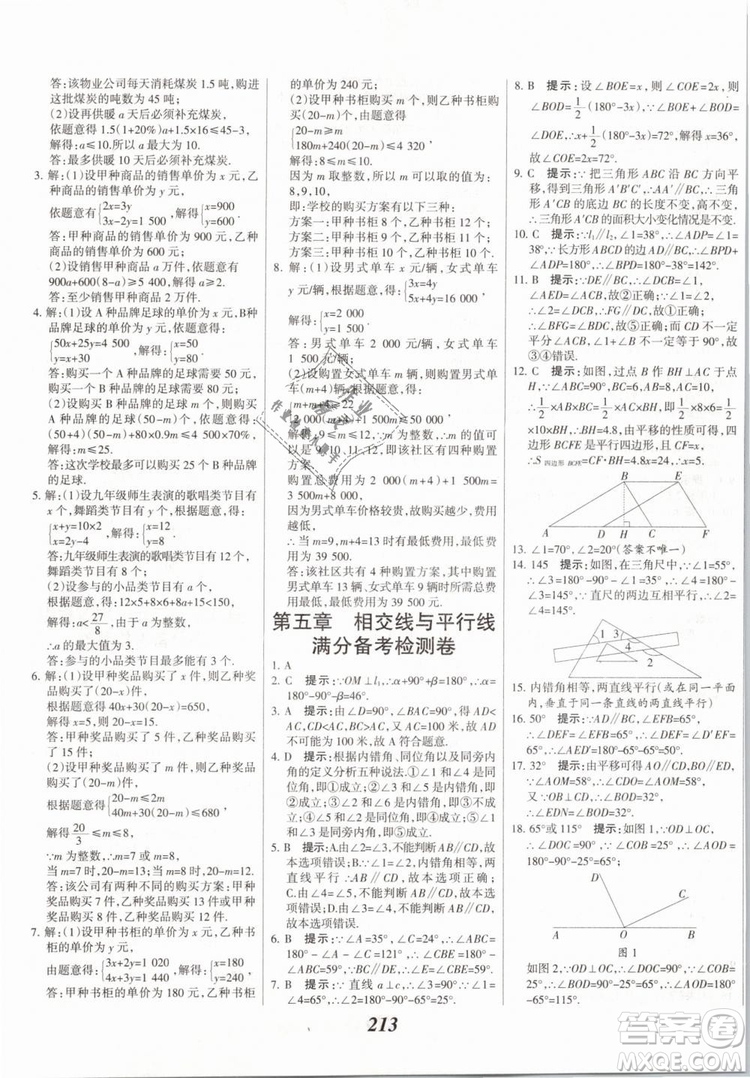 答:该物业公司每天消耗煤炭 1.5 吨,购进
这批煤炭的吨数为 45 吨;
(2)设再供暖 a 天后必须补充煤炭.
依题意得 1.5(1+20%)a+1.5×16≤45-3,
解得:a≤10.所以 a 最大为 10.
答:最多供暖 10 天后必须补充煤炭.
3. 解:(1)设甲种商品的销售单价为 x 元,乙
种商品的销售单价为 y 元,
依题意有{2x=3y 3x-2y=1 500,解得{x=900 y=600
答:甲种商品的销售单价为 900 元,乙种
商品的销售单价为 600 元;
(2)设销售甲种商品 a 万件,依题意有
900a+600(8-a)≥5 400,解得 a≥2.
答:至少销售甲种商品 2 万件.
4. 解:(1)设 A 种品牌足球的单价为 x 元,B
种品牌足球的单价为 y 元,依题意得:
{50x+25y=4 500 y=x+30,解得:{x=50 y=80
答:购买一个 A 种品牌的足球需要 50 元,
购买一个 B 种品牌的足球需要 80 元.
(2)设购买 B 种品牌的足球 m 个,则
购买 A 种品牌的足球(50-m)个,则
(50+4)(50-m)+80×0.9m≤4 500×70%,
解得:m≤25.
答:这次学校最多可购买 25 个 B 种品牌
的足球.
5. 解:(1)设九年级师生表演的歌唱类节目有
x 个,舞蹈类节目有 y 个,根据题意,得:
{x+y=10×2 x=2y-4,解得:{x=12 y=8,
答:九年级师生表演的歌唱类节目有 12 个,
舞蹈类节目有 8 个;
(2)设参与的小品类节目有 a 个,
根据题意,得:12×5+8×6+8a+15<150,
解得:a<27/8,由于 a 为整数,
∴a 的最大值为 3.
答:参与的小品类节目最多能有 3 个.
6. 解:(1)设甲种奖品购买了 x 件,乙种奖
品购买了(20-x)件,
根据题意得 40x+30(20-x)=650,
解得 x=5,则 20-x=15,
答:甲种奖品购买了 5 件,乙种奖品购买
了 15 件;
(2)设甲种奖品购买了 m 件,乙种奖品购
买了(20-m)件,
根据题意得{20-m≤2m 40m+30(20-m)≤680,
解得 20/3≤m≤8,
∵m 为整数,∴m=7 或 m=8,
当 m=7 时,20-m=13;
当 m=8 时,20-m=12;
答:该公司有两种不同的购买方案:甲种
奖品购买 7 件,乙种奖品购买 13 件或甲种
奖品购买 8 件,乙种奖品购买 12 件.
7. 解:(1)设甲种书柜的单价为 x 元,乙种书
柜的单价为 y 元,
由题意得:{3x+2y=1 020 4x+3y=1 440,解得:{x=180 y=240,
答:甲种书柜的单价为 180 元,乙种书柜
的单价为 240 元;
(2)设甲种书柜购买 m 个,乙种书柜购买
(20-m)个.由题意得:
{20-m≥m 180m+240(20-m)≤4 320
解得:8≤m≤10.
因为 m 取整数,所以 m 可以取的值为:
8,9,10,
即:学校的购买方案有以下三种:
方案一:甲种书柜 8 个,乙种书柜 12 个,
方案二:甲种书柜 9 个,乙种书柜 11 个,
方案三:甲种书柜 10 个,乙种书柜 10 个.
8. 解:(1)设男式单车 x 元/辆,女式单车
y 元/辆,根据题意,得:{3x=4y 5x+4y=16 000
解得:{x=2 000 y=1 500,
答:男式单车 2 000 元/辆,女式单车
1 500元/辆;
(2)设购置女式单车 m 辆,则购置男式单车
(m+4)辆,根据题意,得:
解得:9≤m≤12,
∵m 为整数,
∴m 的值可以是 9、10、11、12,即该社区有
四种购置方案;
购置总费用为 2 000(m+4)+1 500m=
3 500m+8 000,
因为男式单车价格较大,因此男式单车最
少时,费用低.
∴当 m=9,m+4=13 时,有最低费用,最低
费用为 39 500.
答:该社区共有 4 种购置方案,其中购置男
式单车 13 辆、女式单车 9 辆时所需总费用
最低,最低费用为 39 500 元.
第五章 相交线与平行线
满分备考检测卷
1. A
2. C 提示:∵OM⊥l₁,∴α+90°+β=180°,
∴α+β=90°.
3. A 提示:由∠D=90°,∠BAC=90°,得 AD<
AC,CD<AC,BC>AC.由 AC=100,得 AD<
100,故不可能为 100 米,故 A 符合题意.
4. D 提示:根据内错角、同位角以及同旁内
角的定义分析五种说法.①∠1 与∠2 是同
旁内角,即①成立;②∠1 与∠ACE 是内错
角,即②成立;③∠B 与∠4 是同位角,即③不
成立;④∠1 与∠3 是内错角,即④成立;⑤∠2
和∠3 是邻补角,即⑤成立.
5. B 提示:A.由∠2=35°,不能判断 AB∥CD,故
本选项错误;B.∵∠3=∠1,∴AB∥CD,
故本选项正确;C.由∠4=∠1,不能判断
AB∥CD,故本选项错误;D.不能判断 AB∥CD,
故本选项错误.
6. B 提示:∵∠A=35°,∠C=90°,∴∠ABC=
55°,∵BE∥AC,∴∠CBE=90°,∴∠EBF=
180°-90°-55°=35°.
7. B 提示:∵∠1=∠2,∴a∥b,∴∠3=
∠4=65°,
8. B 提示:设∠BOE=x,∠COE=2x,则
∠BOD=1/2(180°-3x),∵∠BOE+∠BOD=
∠DOE,∴x+1/2(180°-3x)=72°,解得:x=36°,
∴2x=72°.
9. C 提示:∵把三角形 ABC 沿 BC 方向平
移,得到三角形 A'B'C',∴AA'∥BC',∴三角
形 A'CB 的底边 BC 的长度不变,高不变,
∴三角形 A'CB 的面积大小变化情况是不变.
10. C 提示:∵l₁∥l₂,∠ADP=∠DBC=
38°,∵长方形ABCD中AD∥BC,∴∠BPD+
∠ADP=180°,∴∠BPD=180°-38°=142°.
11. B 提示:∵DE∥BC,∴∠DCB=∠1,
∠AED=∠ACB,故②正确;∵∠1=∠2,
∴∠2=∠DCB,∴FG∥DC,故①正确;
∴∠BFG=∠BDC,故⑤正确;而 CD 不一定
平分∠ACB,∠1+∠B 不一定等于 90°,
故③④错误.
12. C 提示:如图,过点 B 作 BH⊥AC 于点
H,∵∠ABC=90°,AB=8,BC=6,AC=10,
∴1/2×AB×BC=1/2×AC×BH,即1/2×8×6=1/2
×10×BH,∴BH=4.8,由平移的性质可得,四
边形 BCFE 是平行四边形,∴CF=AD=9,
∴S四边形BCFE=CF·BH=9×4.8=43.2.
B E
A D H C F
13. ∠1=70°,∠2=20°(答案不唯一)
14. 145 提示:如图,在三角尺中,∵∠1=
55°,∠A=60°,∴∠3=∠4=360°-90°-60°-
55°=145°,∵直尺的两边平行,∴∠2=
∠4=145°.
1 3
4
15. 内错角相等,两直线平行(或在同一平面
内,垂直于同一条直线的两直线平行)
16. 50° 提示:∵AD∥BC,∠EFB=65°,
∴∠DEF=65°,又∵∠DEF=∠D'EF=
65°,∴∠AED'=50°.
17. 32° 提示:由平移可得 AO∥CD,BO∥DM,
∴∠AOM=∠CDM,∠BOD=∠MDE=58°,
又∵OB⊥OA,∴∠AOD=∠AOB-∠BOD=
90°-58°=32°,∴∠CDM=32°.
18. 65°或115° 提示:如图1,∵OD⊥OC,
∴∠DOC=90°,∵∠BOC=25°,∴∠AOD=
180°-∠DOC-∠BOC=65°;
D C
A O B
图 1
如图 2,∵OD⊥OC,∴∠DOC=90°,∵∠BOC=
25°,∴∠BOD=90°-25°=65°,∴∠AOD=
180°-∠BOD=115°.
213
答案圈
MXQE.COM